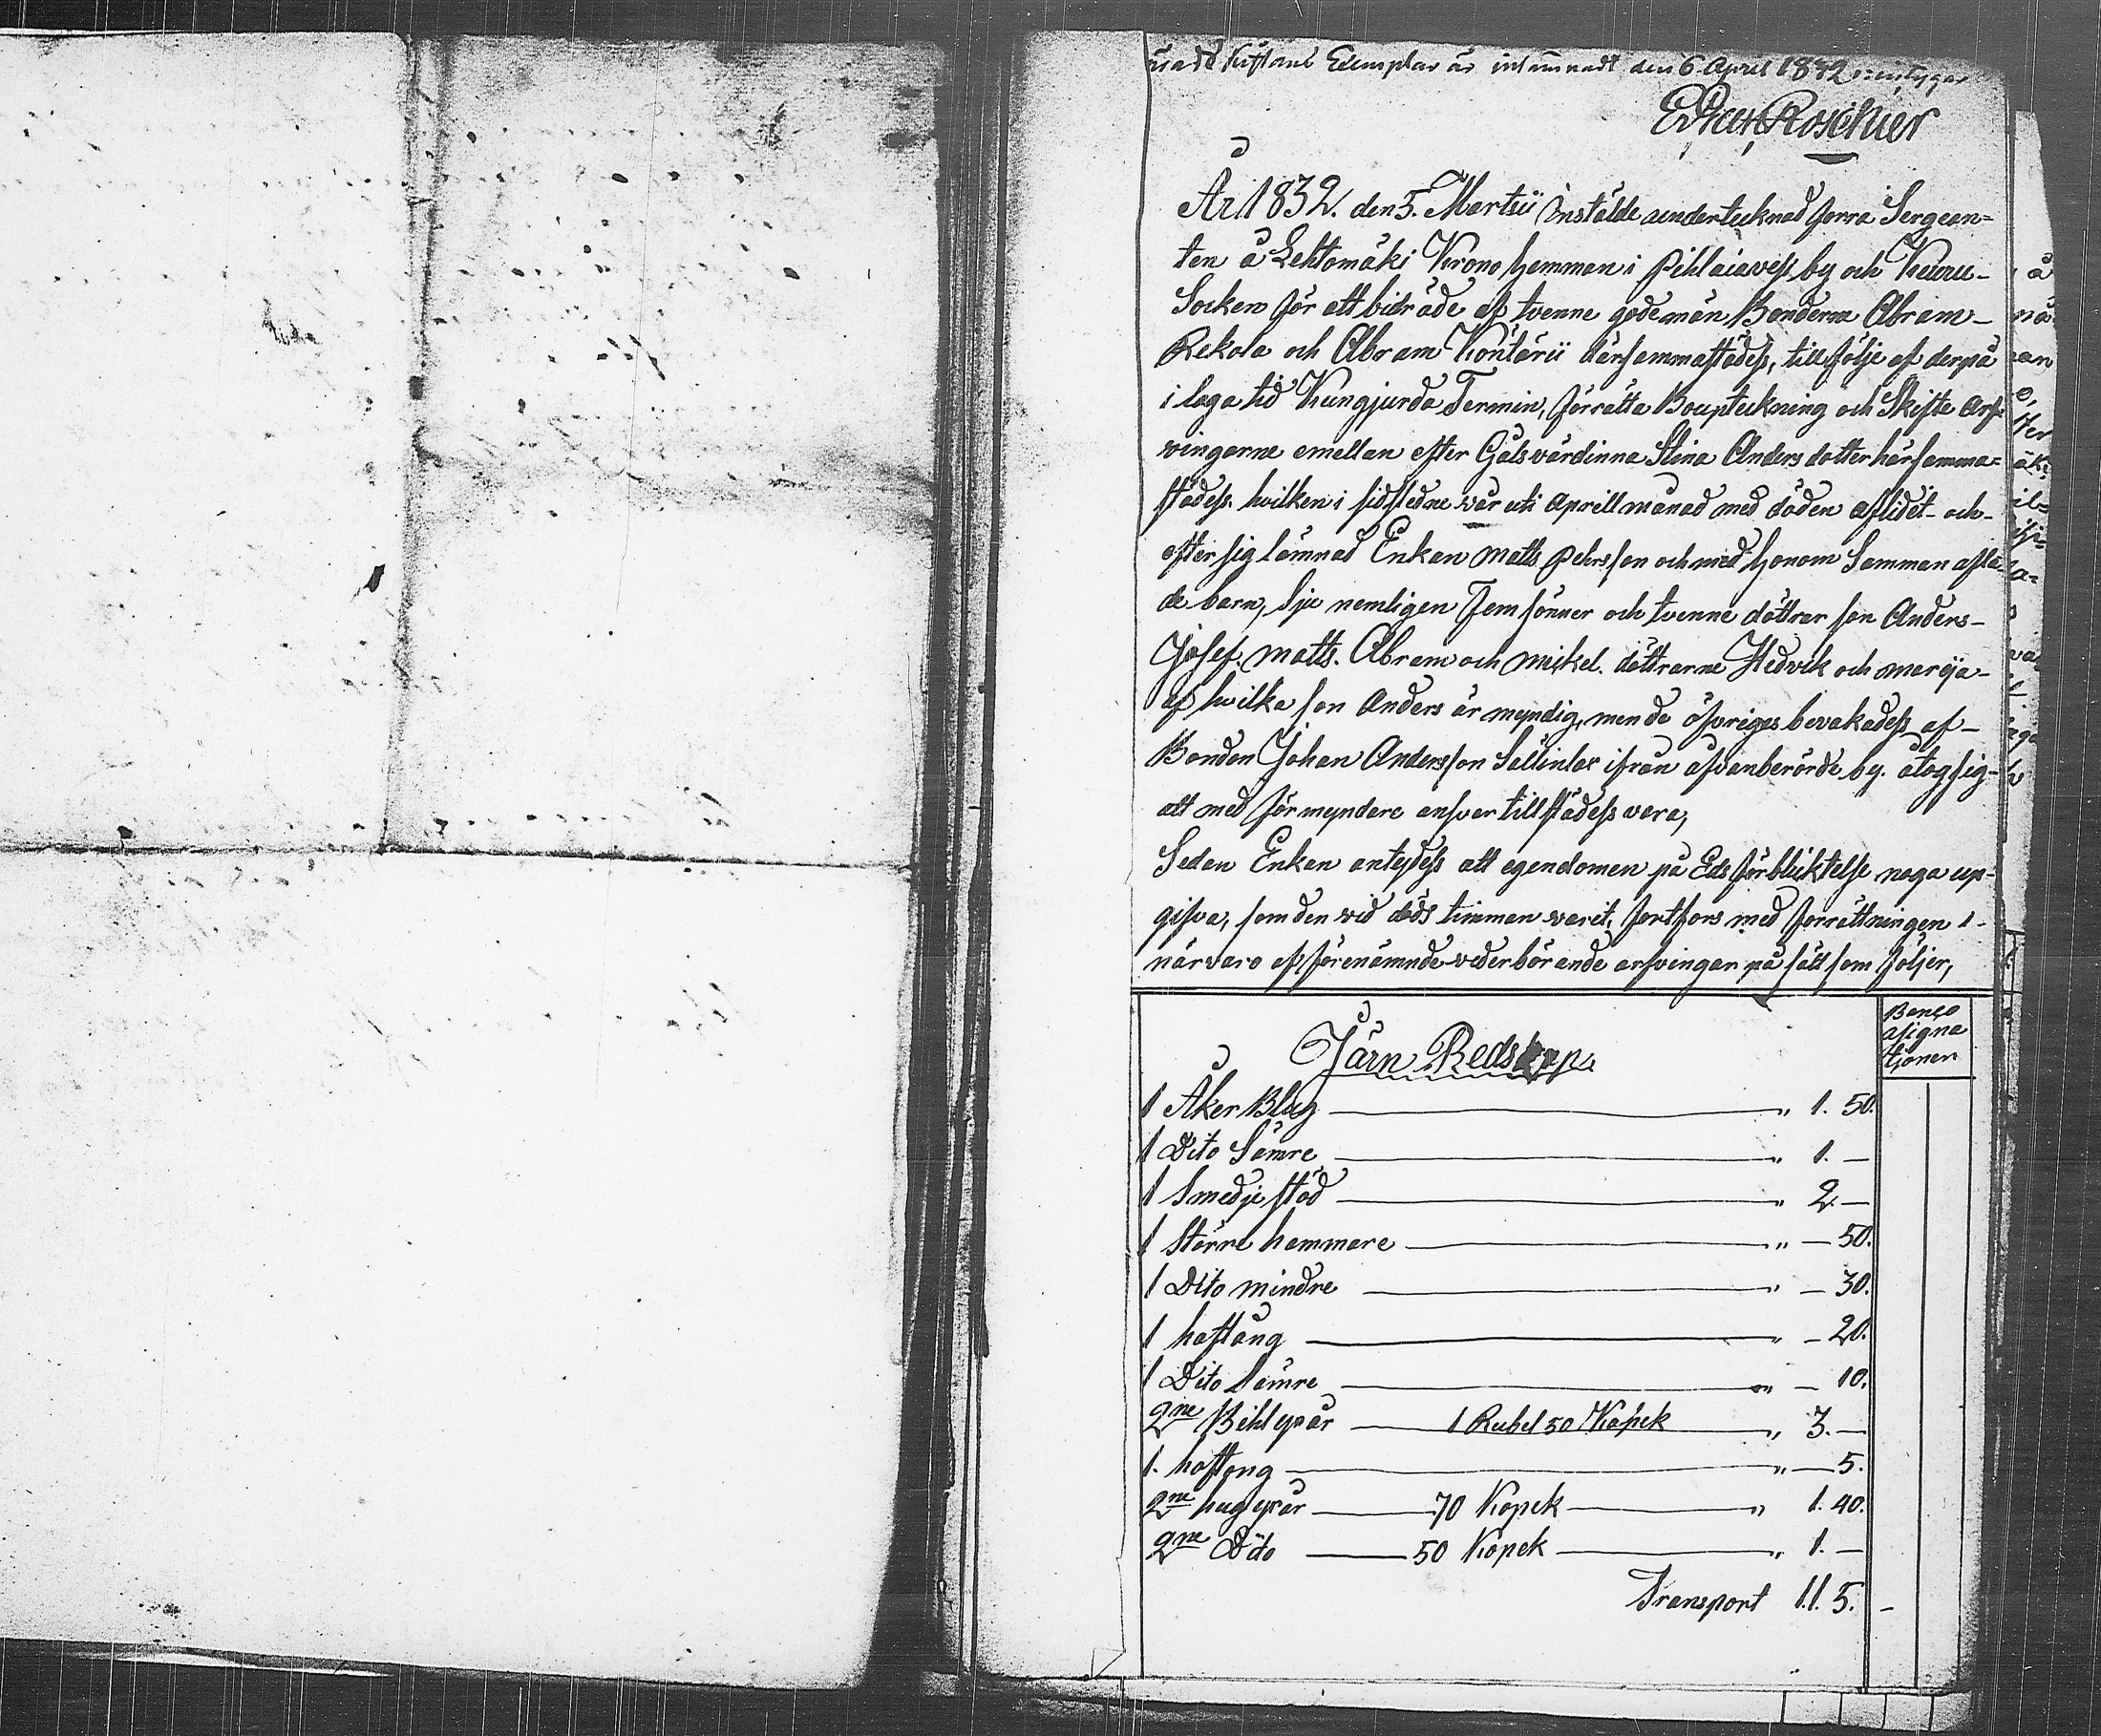 Exemplar är inlämnadt den 6 April 1832 intygar
Roschier
År 1832. den 5. Martii Instälde undertecknad förra Sergean-
ten å Lehtomäki Krono hemman i Pihlaiavess by och Kuru-
Socken för att biträde af tvenne gode män Bonderna Abram-
Rekola och Abram Kontärii därsammastädess, till följe af derpå
i laga tid Kungjurda Termin, förrätta Boupteckning och Skifte arf-
vingarne emellan efter Gålsvärdinna Stina Anders dotter härsamma-
städess. hvilken i sidstledne vår uti Aprill månad med döden aflidet- och-
efter sig lämnad Enkan Matts Pehrsson och med honom Samman afla-
de barn, Sju nemligen Fem sönner och tvenne döttrar son Anders-
Josef. Matts. Abram och Mickel. döttrarne Hedvik och Marija-
af hvilka son Anders är myndig, men de öfvriges bevakadess af-
Bonden Johan Andersson Sällinlax ifrån ofvanberörde by. åtog sig-
att med förmyndare ansvar tillstädess vara,
Sedan Enkan antydess att egendomen på Eds förbliktelse noga up-
gifva, som den vid döds timman varit, fortfors med förrättningen i-
närvaro af förenämnde vederbörande arfvingar på sätt som följer,
Banco
asigna
tjonen
Järn Redskap
1 Åker Blug " 1. 50.
1 Dito Sämre " 1. —
1 Smedje städ " 2. —
1 Större hammare " — 50.
1 Dito mindre " — 30.
1 hoftång " — 20.
1 Dito Sämre " — 10.
2ne Bihl yxar 1 Rubel 50 Kopek " 3. —
1. hoftong " — 5.
2ne hug yxar 70 Kopek " 1. 40.
2ne Dito 50 Kopek " 1. —
Transport 11. 5. -